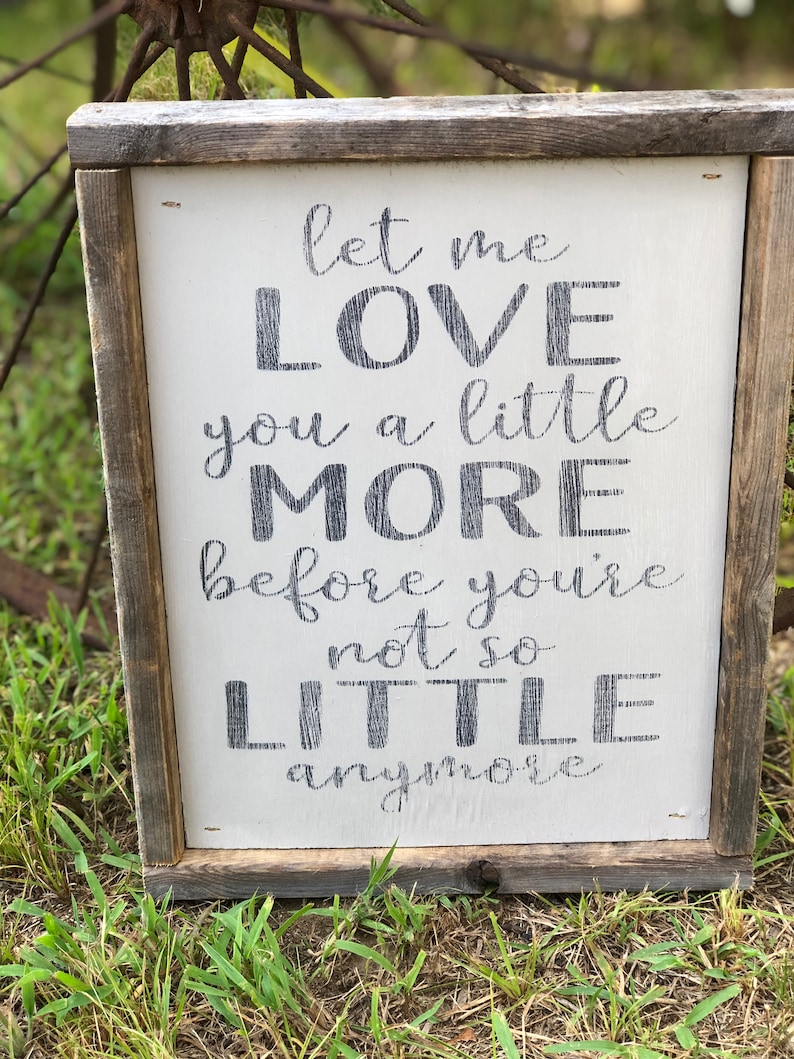 let me
LOVE
you a little
MORE
before you're
not so
LITTLE
anymore